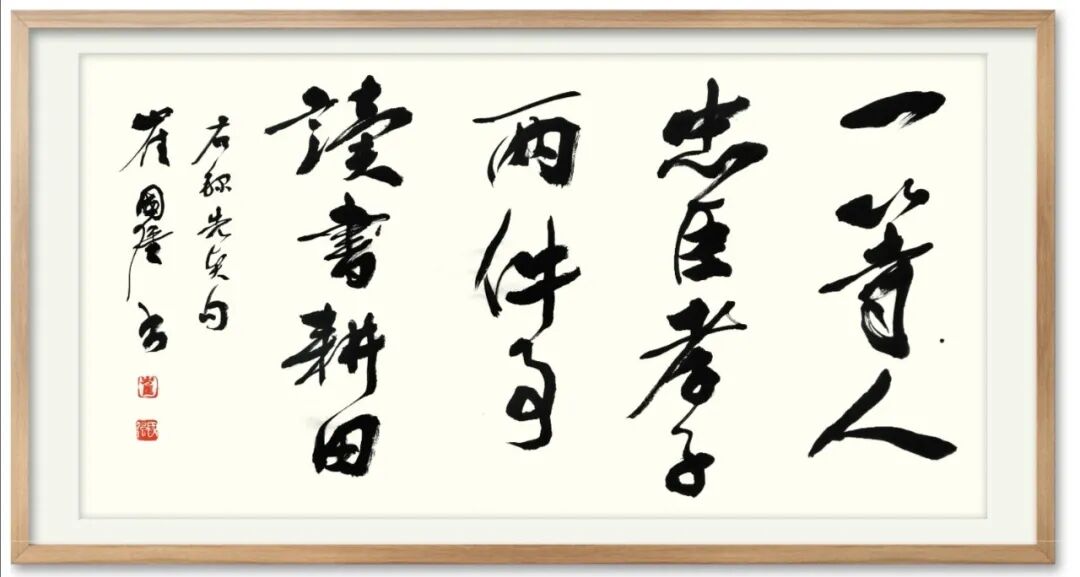 一等人
忠臣孝子
兩件事
讀書耕田
右錄先贤句
崔國書
崔